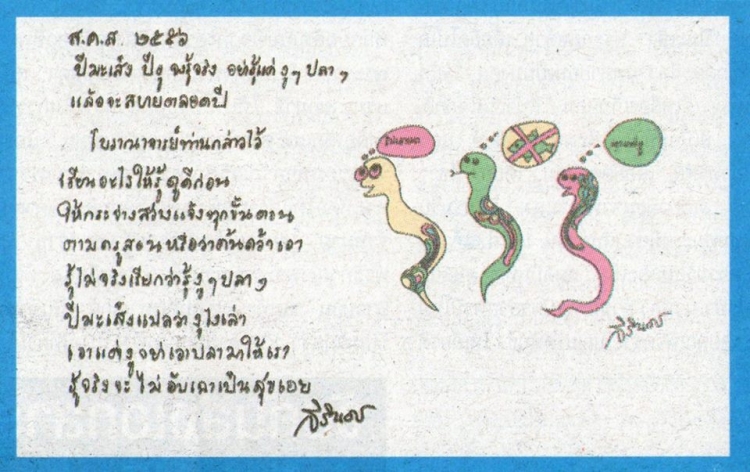 ส.ค.ส. ๒๕๕๖
ปีมะเส็ง ปีงู จงรู้จริง อย่ารู้แค่ งู ๆ ปลา ๆ
แล้วจะสบายตลอดปี
โบราณาจารย์ท่านกล่าวไว้
เรียนอะไรให้รู้ดูดีก่อน
ให้กระจ่างสว่างแจ้งทุกขั้นตอน
ตามครูสอนหรือว่าค้นคว้าเอา
รู้ไม่จริงเรียกว่ารู้งู ๆ ปลา ๆ
ปีมะเส็งแปลว่างูไงเล่า
เอาแต่งูอย่าเอาปลามาให้เรา
รู้จริงจะไม่อับเฉาเป็นสุขเอย
สิรินธร
สิรินธร